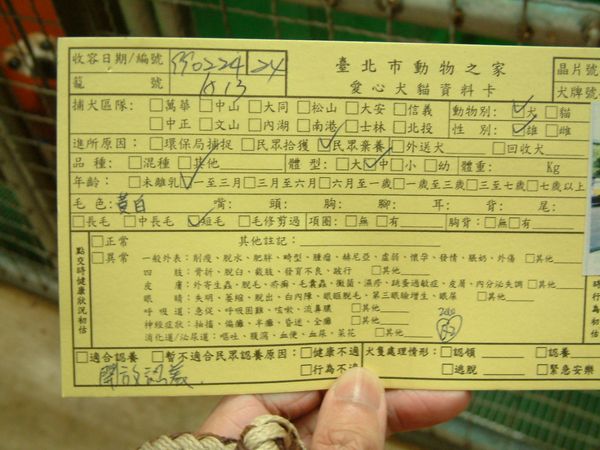 收容日期/編號 990224 24 臺北市動物之家 晶片號
籠 號 愛心犬貓資料卡 犬牌號
捕犬區隊: □萬華 □中山 □大同 □松山 □大安 □信義 動物別: ☑犬 □貓
□中正 □文山 □內湖 □南港 □士林 □北投 性 別: ☑雄 □雌
進所原因: □環保局捕捉 □民眾拾獲 ☑民眾棄養 □外送犬 □回收犬
品 種: □混種 □其他 體 型: □大 ☑中 □小 □幼 體重: Kg
年齡: □未離乳 ☑一至三月 □三月至六月 □六月至一歲 □一歲至三歲 □三至七歲 □七歲以上
毛 色: 黃白 嘴: 頭: 胸: 腳: 耳: 背: 尾:
□長毛 □中長毛 ☑短毛 □毛修剪過 項圈: □無 □有 胸背: □無 □有
點交時健康狀況初估
□正常 其他註記:
□異常 一般外表: 削瘦、脫水、肥胖、畸型、腫瘤、赫尼亞、虛弱、懷孕、發情、脹奶、外傷 □其他
四 肢: 骨折、脫臼、截肢、發育不良、跛行 □其他
皮 膚: 外寄生蟲、脫毛、疥癬、毛囊蟲、黴菌、濕疹、跳蚤過敏症、皮屑、內分泌失調 □其他
眼 睛: 失明、萎縮、脫出、白內障、眼瞼脫毛、第三眼瞼增生、眼屎 □其他
呼 吸 道: 急促、呼吸困難、咳嗽、流鼻膿 □其他
神經症狀: 抽搐、偏癱、半癱、昏迷、全癱 □其他
消化道/泌尿道: 嘔吐、腹瀉、血便、血尿、菜花 □其他
□適合認養 □暫不適合民眾認養原因: □健康不適 犬隻處理情形: □認領 □認養
開放認養 □行為不適 □逃脫 □緊急安樂